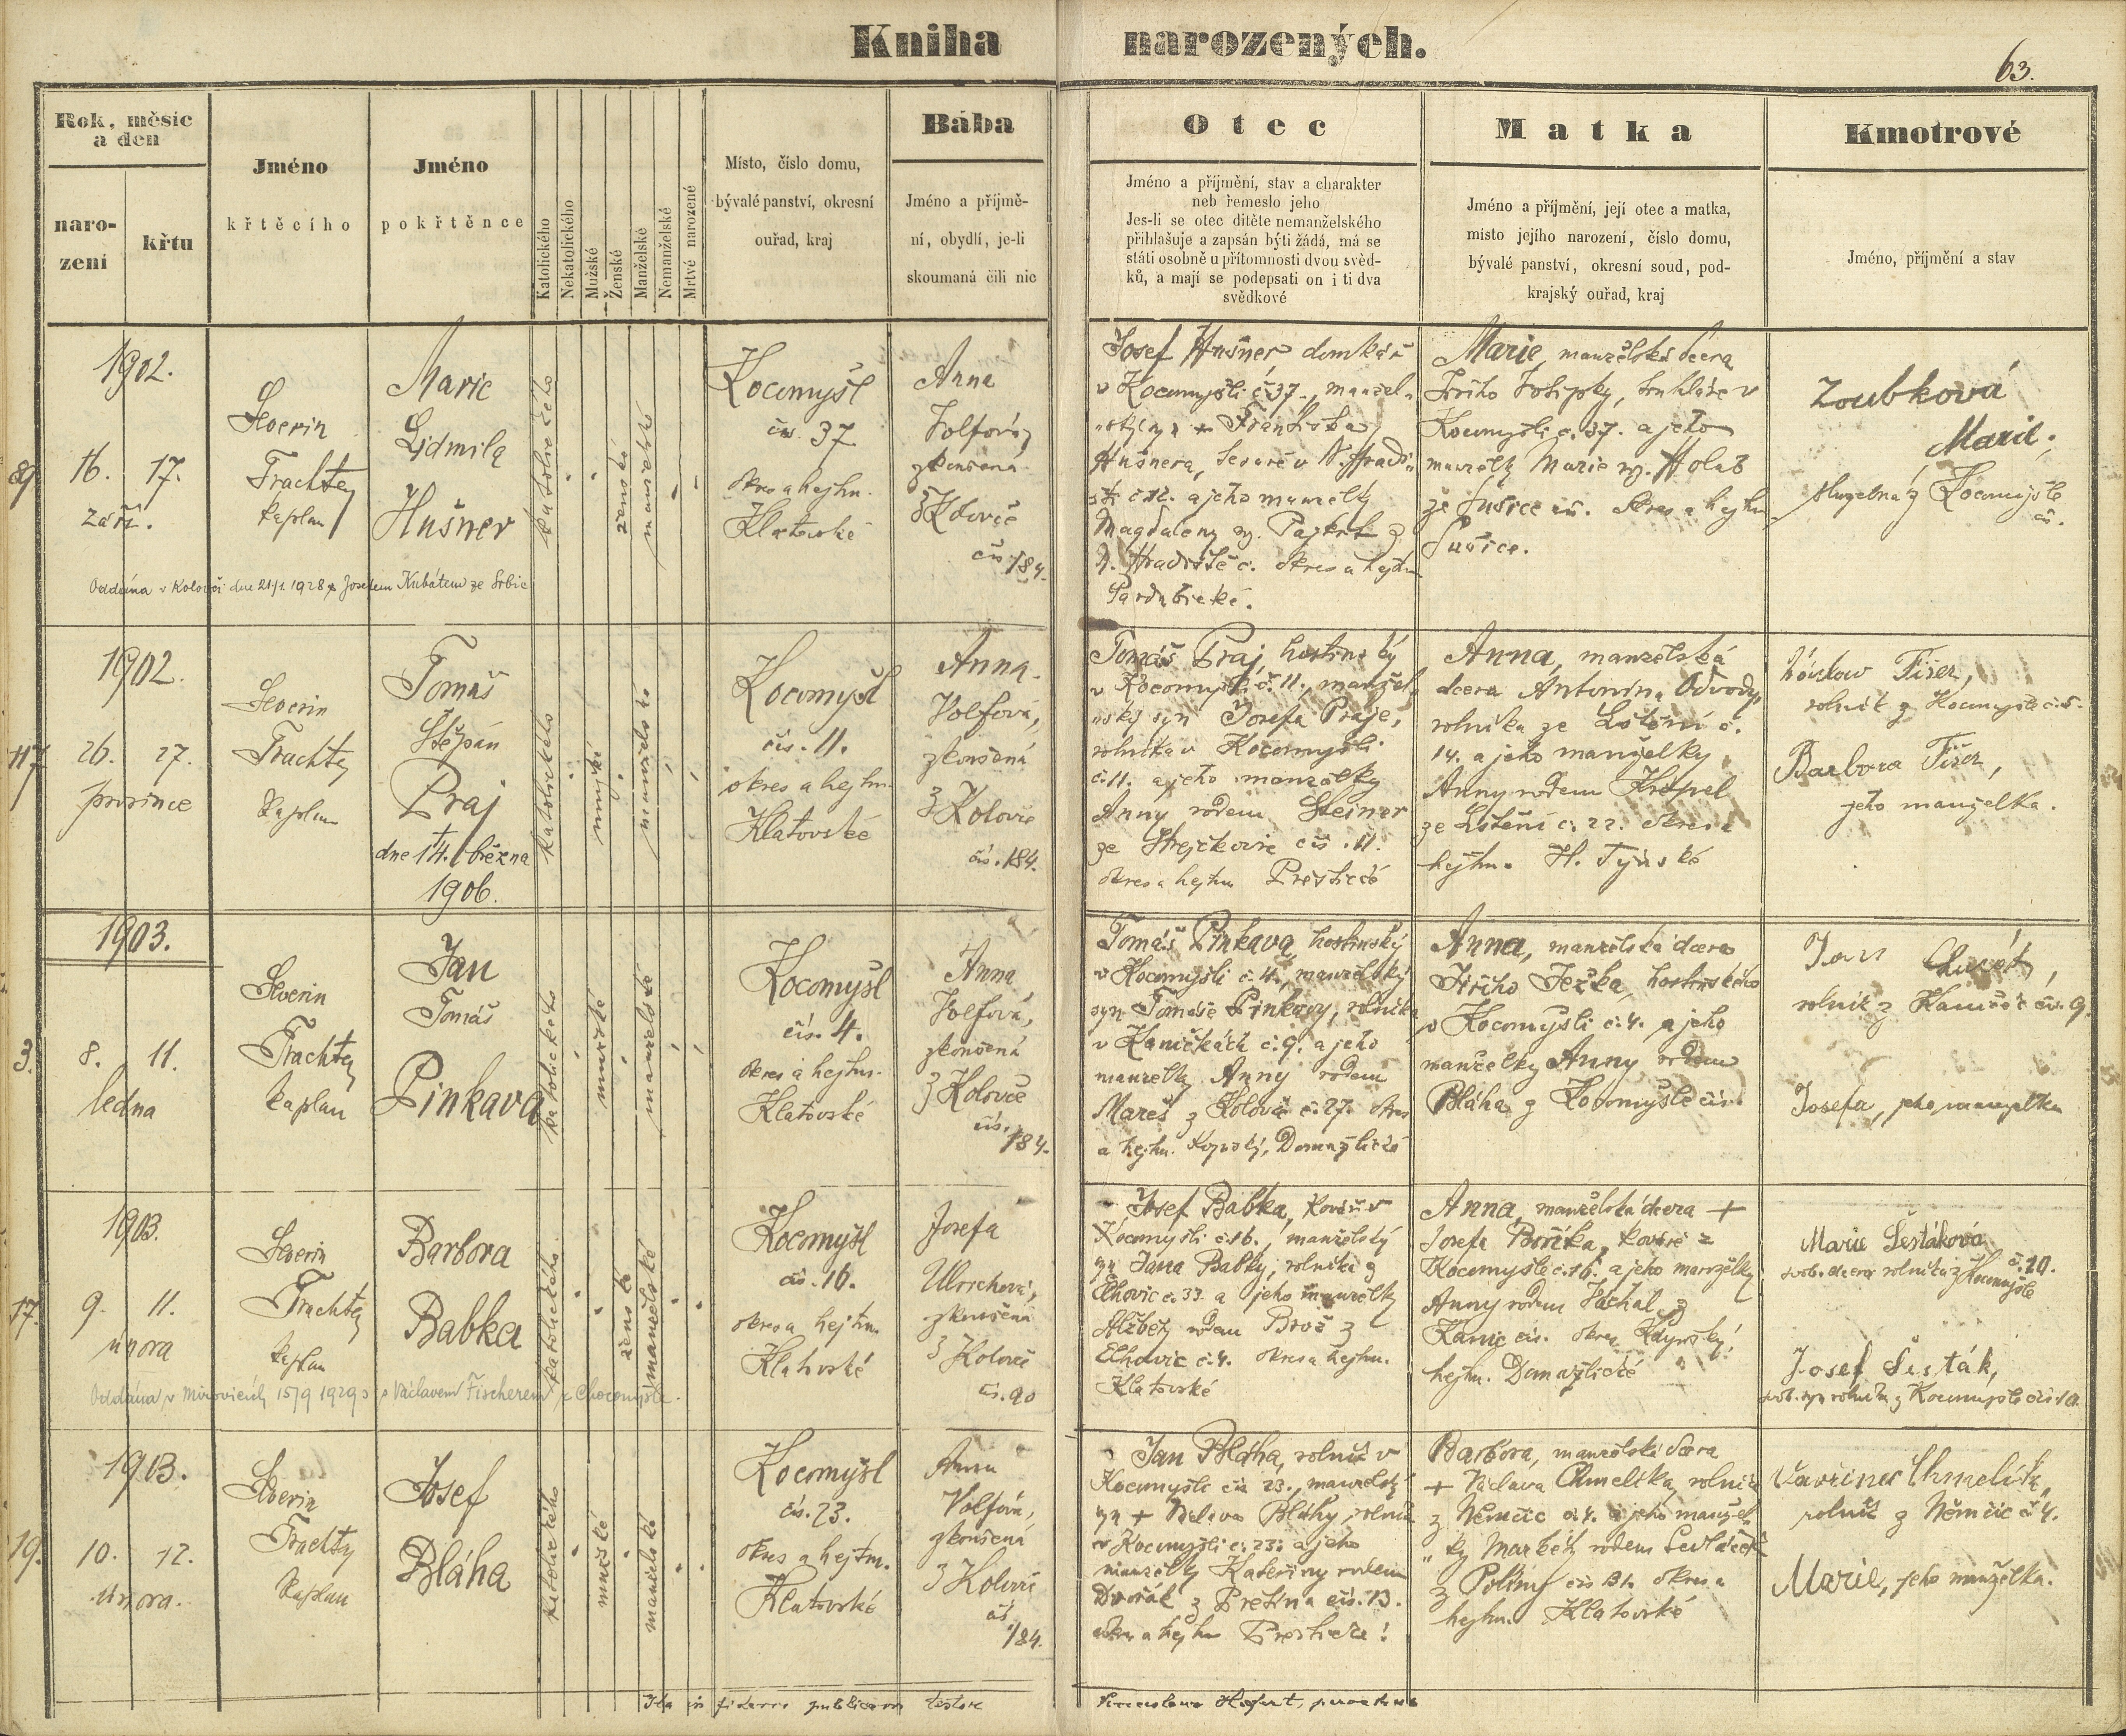 Kniha narozených.
63.
Rok, měsíc
a den
naro-
zení
křtu
Jméno
křtěcího
Jméno
pokřtěnce
Katolického
Nekatolického
Mužské
Ženské
Manželské
Nemanželské
Mrtvé narozené
Místo, číslo domu,
bývalé panství, okresní
ouřad, kraj
Bába
Jméno a příjmě-
ní, obydlí, je-li
skoumaná čili nic
Otec
Jméno a příjmění, stav a charakter
neb řemeslo jeho
Jes-li se otec dítěte nemanželského
přihlašuje a zapsán býti žádá, má se
státi osobně u přítomnosti dvou svěd-
ků, a mají se podepsati on i ti dva
svědkové
Matka
Jméno a příjmění, její otec a matka,
místo jejího narození, číslo domu,
bývalé panství, okresní soud, pod-
krajský ouřad, kraj
Kmotrové
Jméno, příjmění a stav
89
1902.
16. 17.
září.
Severin
Trachta
kaplan
Marie
Lidmila
Hušner
katolického
ženské
manželské
Kocomyšl
čís. 37
okres a hejtm.
Klatovské
Anna
Volfová,
zkoušená
z Koloveč
čís. 184.
Josef Hušner domkář
v Kocomyšli č. 37., manžel-
Františka
Hušnera,
č. 12. a jeho manželky
Magdaleny
okres a hejtm.
Pardubické.
Marie, manželská dcera
Kocomyšli č. 37. a jeho
manželky Marie roz. Holub
ze Sušice čís. okres a hejtm.
Sušice.
Zoubková
Marie,
služebná z Kocomyšle
čís.
Oddána v Kolovči dne 21/1 1928 s Josefem Kubátem ze Srbic
117
1902.
26. 27.
prosince
Severin
Trachta
kaplan
Tomáš
Štěpán
Praj
dne 14. března
1906.
katolického
mužské
manželské
Kocomyšl
čís. 11.
okres a hejtm.
Klatovské
Anna
Volfová,
zkoušená
z Koloveč
čís. 184.
Tomáš Praj, hostinský
v Kocomyšli č. 11., manžel-
ský syn Josefa Praje,
rolníka v Kocomyšli
č. 11. a jeho manželky
Anny rodem Steiner
čís. 11.
okres a hejtm. Přestické
Anna, manželská
dcera Antonína Odvody,
rolníka ze Lštění č.
14. a jeho manželky
Anny rodem
ze Lštění č. 22. okres a
hejtm. H. Týnské
Fišer,
rolník z Kocomyšle č. 5.
Barbora Fišer,
jeho manželka.
3.
1903.
8. 11.
ledna
Severin
Trachta
kaplan
Jan
Tomáš
Pinkava
katolického
mužské
manželské
Kocomyšl
čís. 4.
okres a hejtm.
Klatovské
Anna
Volfová,
zkoušená
z Koloveč
čís.
184.
Tomáš Pinkava, hostinský
v Kocomyšli č. 4., manželský
syn Tomáše Pinkavy, rolníka
v Kaničkách č. 9. a jeho
manželky Anny rodem
Mareš z Koloveč č. 27. okres
a hejtm. Domažlické
Anna, manželská dcera
Jiřího Ježka, hostinského
v Kocomyšli č. 4. a jeho
manželky Anny rodem
Bláha z Kocomyšle čís.
Jan
rolník z Kaniček čís. 9.
Josefa, jeho manželka
17.
1903.
9. 11.
února
Severin
Trachta
kaplan
Barbora
Babka
katolického
ženské
manželské
Kocomyšl
čís. 16.
okres a hejtm.
Klatovské
Josefa
Ulrichová,
zkoušená
z Koloveč
čís. 90
Josef Babka, kovář v
Kocomyšli č. 16., manželský
syn Jana Babky, rolníka z
Elhovic č. 33. a jeho manželky
Alžběty rodem Brož z
Elhovic č. 4. okres a hejtm.
Klatovské
Anna, manželská dcera +
Josefa Boříka, kováře z
Kocomyšle č. 16. a jeho manželky
Anny rodem
Kanic čís. okres Kdyňský,
hejtm. Domažlické
Marie Šestáková
svob. dcera rolníka z Kocomyšle č. 10.
Josef Šesták,
svob. syn rolníka z Kocomyšle čís. 10.
Oddána v Mirovicích 15/9 1929 s Václavem Fischerem z Chocomyšle.
19.
1903.
10. 12.
února.
Severin
Trachta
kaplan
Josef
Bláha
katolického
mužské
manželské
Kocomyšl
čís. 23.
okres a hejtm.
Klatovské
Anna
Volfová,
zkoušená
z Koloveč
čís.
184.
Jan Bláha, rolník v
Kocomyšli čís. 23., manželský
syn + Václava Bláhy, rolníka
v Kocomyšli č. 23. a jeho
manželky Kateřiny rodem
Dvořák z Přetína čís. 13.
okres a hejtm. Přestické.
Barbora, manželská dcera
+ Václava Chmelíka, rolníka
z Němčic č. 4. a jeho manžel-
ky Markéty rodem Sedláček
z Polině čís. 31. okres a
hejtm. Klatovské
Vavřinec Chmelík,
rolník z Němčic č. 4.
Marie, jeho manželka.
Ita in fidem publicam testor